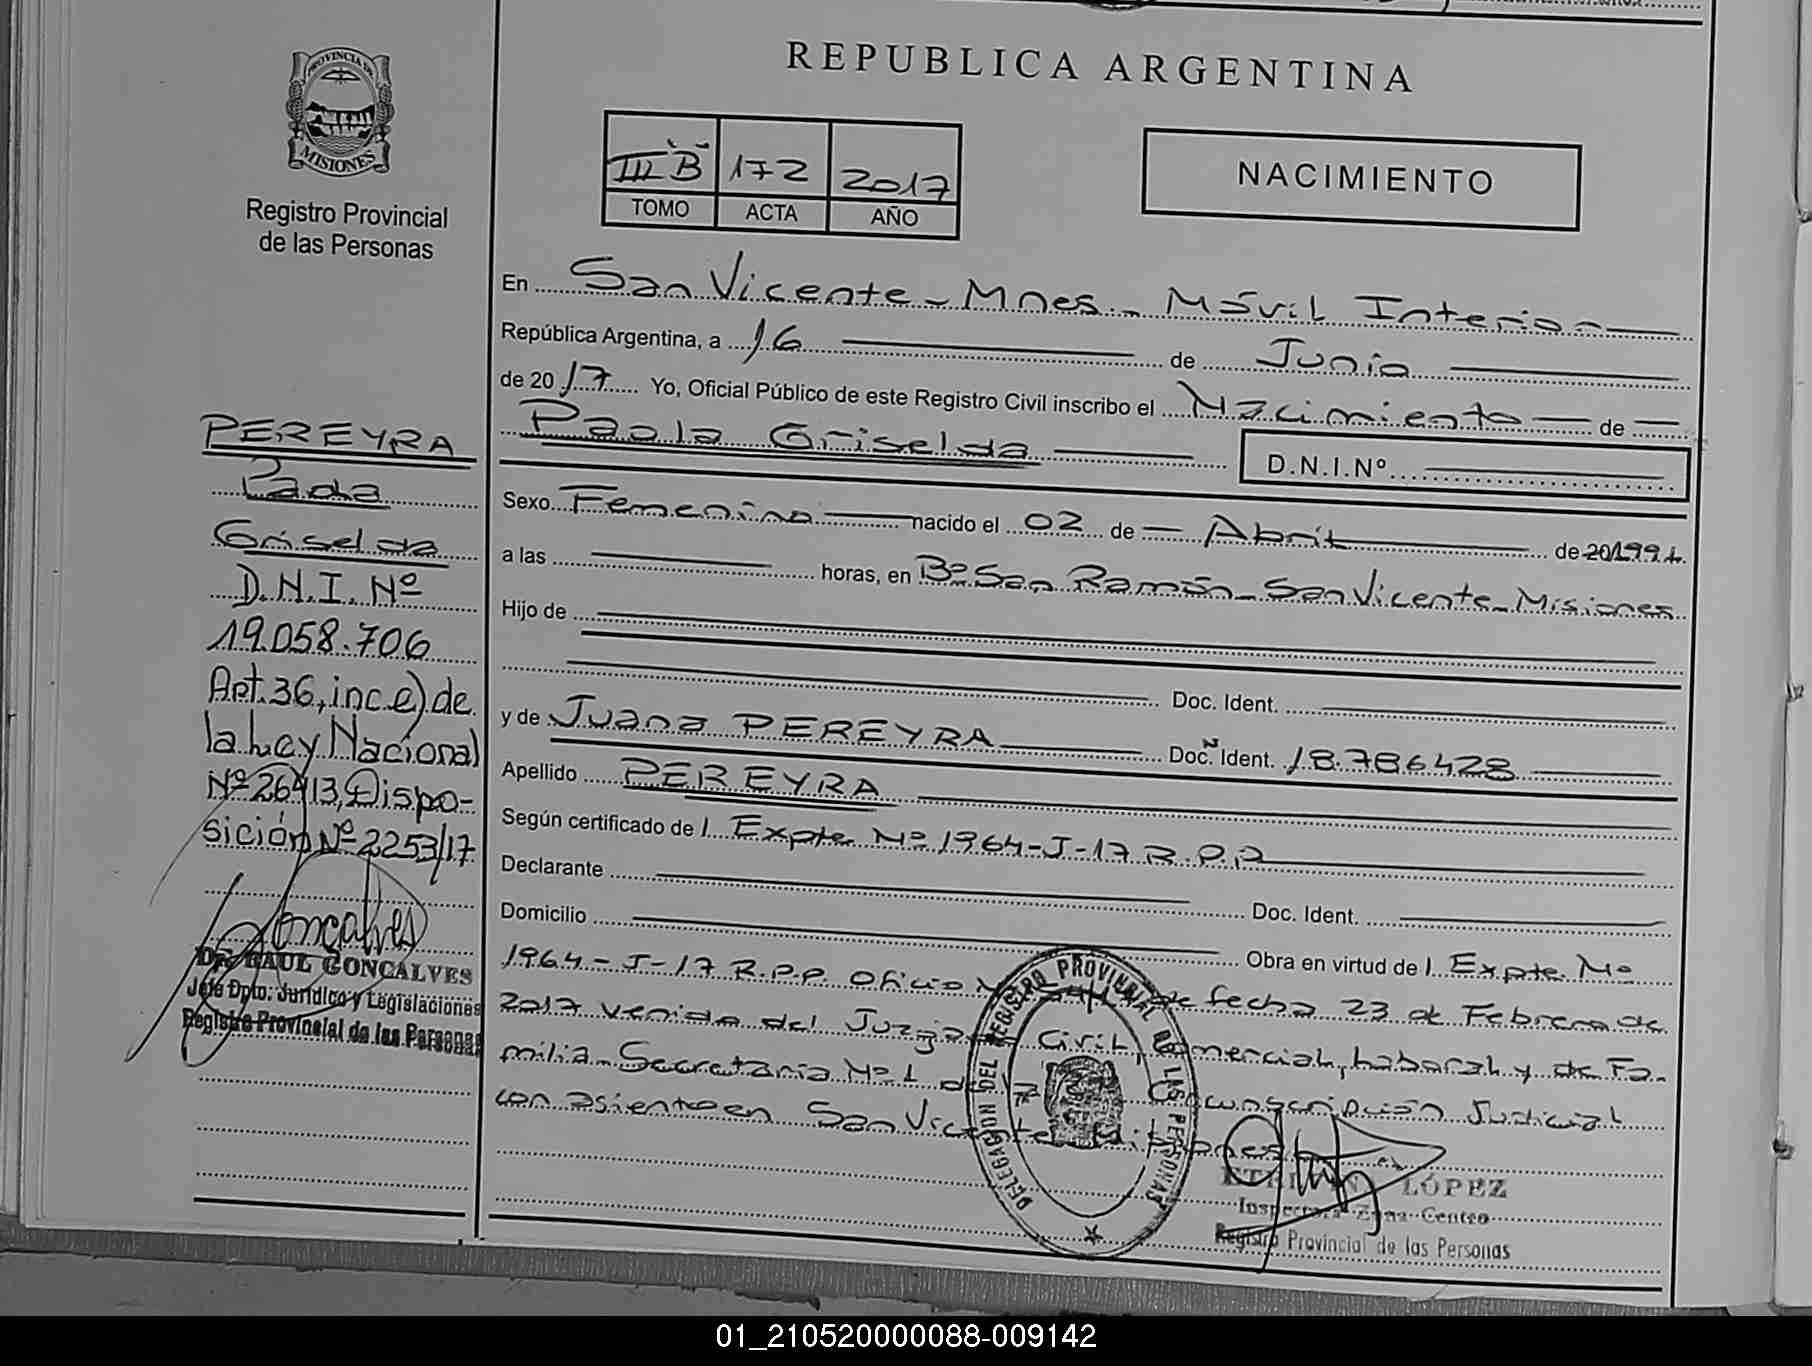 REPUBLICA ARGENTINA
PROVINCIA DE
MISIONES
Registro Provincial
de las Personas
III B 172 2017
TOMO ACTA AÑO
NACIMIENTO
En San Vicente - Mnes. - Móvil Interior
República Argentina, a 16 de Junio
de 2017 Yo, Oficial Público de este Registro Civil inscribo el Nacimiento de
Paola Griselda
D.N.I.Nº
Sexo Femenino nacido el 02 de Abril de 20 1991.
a las horas, en Bº San Ramón - San Vicente - Misiones
Hijo de
Doc. Ident.
y de Juana PEREYRA Doc. Ident. 18.786428
Apellido PEREYRA
Según certificado de l Expte Nº 1964-J-17 R.P.P
Declarante Doc. Ident.
Domicilio
Obra en virtud de l Expte. Nº
1964-J-17 R.P.P. Oficio de fecha 23 de Febrero de
2017 venido del Juzgado Civil, Comercial, Laboral y de Fa-
milia - Secretaria Nº 1 de la Circunscripción Judicial
con asiento en San Vicente Misiones
PEREYRA
Paola
Griselda
D.N.I. Nº
19.058.706
Art. 36, inc. e) de
la Ley Nacional
Nº 26413, Dispo-
sición Nº 2253/17
Goncalves
Dr. RAUL GONCALVES
Jefe Dpto. Jurídico y Legislaciones
Registro Provincial de las Personas
DELEGACION DEL REGISTRO PROVINCIAL DE LAS PERSONAS
LÓPEZ
Inspectora Zona Centro
Registro Provincial de las Personas
01_210520000088-009142